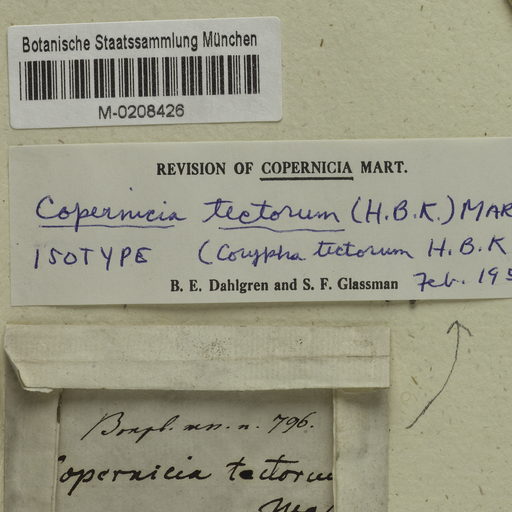 Botanische Staatssammlung München
M-0208426
REVISION OF COPERNICIA MART.
Copernicia tectorum (H.B.K.) MAR
ISOTYPE (Corypha tectorum H.B.K
B. E. Dahlgren and S. F. Glassman Feb. 195
Bonpl. mss. n. 796.
opernicia tectoru